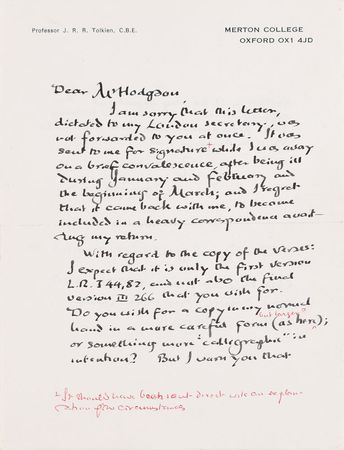 Professor J. R. R. Tolkien, C.B.E.
MERTON COLLEGE
OXFORD OX1 4JD
Dear Mr Hodgson
I am sorry that this letter,
dictated to my London secretary, was
not forwarded to you at once. It was
sent to me for signature while I was away
on a brief convalescence, after being ill
during January and February and
the beginning of March; and I regret
that it came back with me, to become
included in a heavy correspondence await-
ing my return.
With regard to the copy of the verses:
I expect that it is only the first version
L.R. I 44, 82, and not also the final
version III 266 that you wish for.
Do you wish for a copy in my normal
but larger
hand in a more careful form (as here);
or something more "calligraphic" in
intention? But I warn you that
It should have been sent direct with an explan-
ation of the circumstances